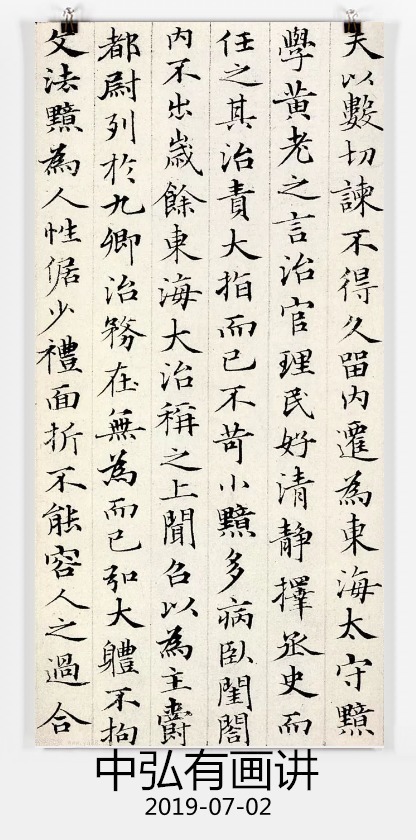 夫以數切諫不得久留内遷為東海太守黯
學黄老之言治官理民好清靜擇丞史而
任之其治責大指而已不苛小黯多病臥閨閤
内不出歲餘東海大治稱之上聞召以為主爵
都尉列於九卿治務在無為而已弘大體不拘
文法黯為人性倨少禮面折不能容人之過合
中弘有画讲
2019-07-02